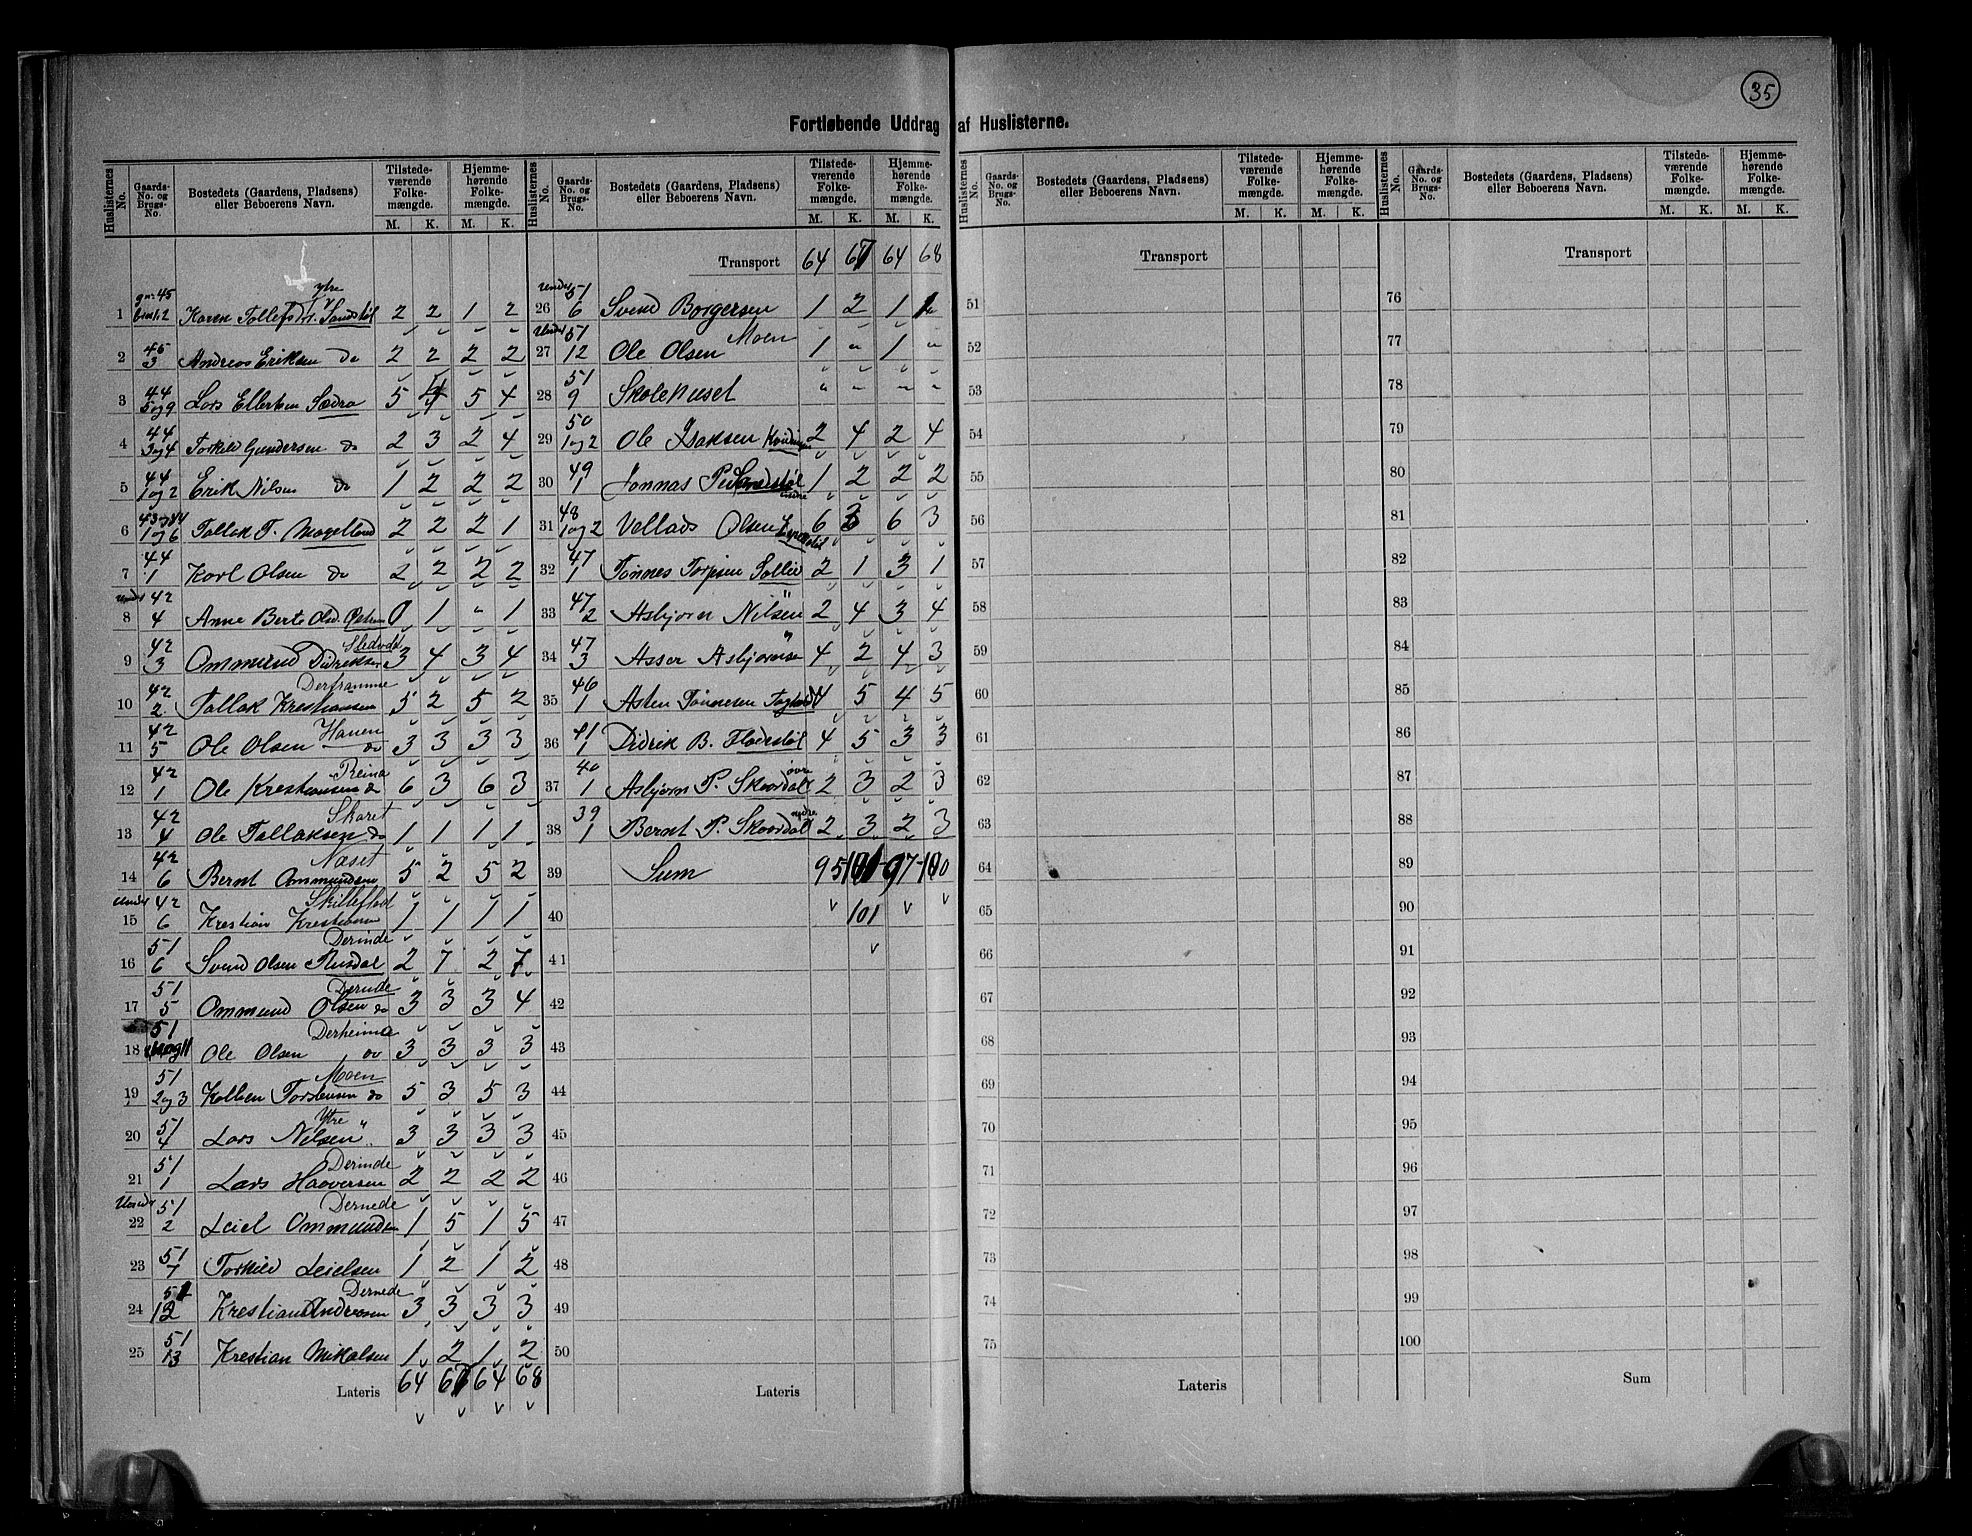 35
Fortløbende Uddrag af Huslisterne.
Huslisternes No. Gaards-No. og Brugs-No. Bostedets (Gaardens, Pladsens) eller Beboerens Navn. Tilstedeværende Folkemængde. M. K. Hjemmehørende Folkemængde. M. K.
1 45 Karen Tollefsdt. ytre Sandstøl 2 2 1 2
2 45 3 Andreas Eriksen do 2 2 2 2
3 44 5 og 9 Lars Ellertsen Sædra 5 4 5 4
4 44 3 og 4 Torkild Gundersen do 2 3 2 4
5 44 1 og 2 Erik Nilsen do 1 2 2 2
6 43 og 44 1 og 6 Tallak T. 2 2 2 1
7 44 1 Karl Olsen do 2 2 2 2
8 Under 42 4 Anne Berte Olsd. 0 1 " 1
9 42 3 Ommund Didriksen 3 4 3 4
10 42 2 Tallak Krestiansen Derframme 5 2 5 2
11 42 5 Ole Olsen Hauen do 3 3 3 3
12 42 1 Ole Krestiansen Reina do 6 3 6 3
13 42 4 Ole Tallaksen Skaret do 1 1 1 1
14 42 6 Bernt Ommundsen Næset 5 2 5 2
15 Under 42 6 Krestian 1 1 1 1
16 51 6 Svend Olsen Derinde Rusdal 2 7 2 7
17 51 5 Ommund Olsen Dernede do 3 3 3 4
18 51 Ole Olsen Derheime do 3 3 3 3
19 51 2 og 3 Kolben Torstensen Moen do 5 3 5 3
20 51 4 Lars Nilsen Ytre " 3 3 3 3
21 51 1 Lars Haaversen Derinde 2 2 2 2
22 Under 51 2 Leiel Ommundsen Dernede 1 5 1 5
23 51 7 Torkild Leielsen 1 2 1 2
24 51 12 Krestian Andreasen Dernede 3 3 3 3
25 51 13 Krestian Mikalsen 1 2 1 2
Lateris 64 67 64 68
Huslisternes No. Gaards-No. og Brugs-No. Bostedets (Gaardens, Pladsens) eller Beboerens Navn. Tilstedeværende Folkemængde. M. K. Hjemmehørende Folkemængde. M. K.
Transport 64 67 64 68
26 Under 51 6 Svend Borgersen 1 2 1
27 Under 51 12 Ole Olsen Moen 1 " 1 "
28 51 9 Skolehuset " " " "
29 50 1 og 2 Ole Isaksen 2 4 2 4
30 49 1 Jonnas 1 2 2 2
31 48 1 og 2 Vellads Olsen 6 3 6 3
32 47 1 Tønnes Torjesen Sollie 2 1 3 1
33 47 2 Asbjørn Nilsen " 2 4 3 4
34 47 3 Asser Asbjørnsen " 4 2 4 3
35 46 1 Asten Tønnesen 4 5 4 5
36 41 1 Didrik B. Flødestøl 4 5 3 3
37 40 1 Asbjørn P. Skovdal øvre 2 3 2 3
38 39 1 Bernt P. Skovdal nedre 2 3 2 3
39 Sum 95 101 97 100
40 101
41
42
43
44
45
46
47
48
49
50
Lateris
Huslisternes No. Gaards-No. og Brugs-No. Bostedets (Gaardens, Pladsens) eller Beboerens Navn. Tilstedeværende Folkemængde. M. K. Hjemmehørende Folkemængde. M. K.
Transport
51
52
53
54
55
56
57
58
59
60
61
62
63
64
65
66
67
68
69
70
71
72
73
74
75
Lateris
Huslisternes No. Gaards-No. og Brugs-No. Bostedets (Gaardens, Pladsens) eller Beboerens Navn. Tilstedeværende Folkemængde. M. K. Hjemmehørende Folkemængde. M. K.
Transport
76
77
78
79
80
81
82
83
84
85
86
87
88
89
90
91
92
93
94
95
96
97
98
99
100
Sum